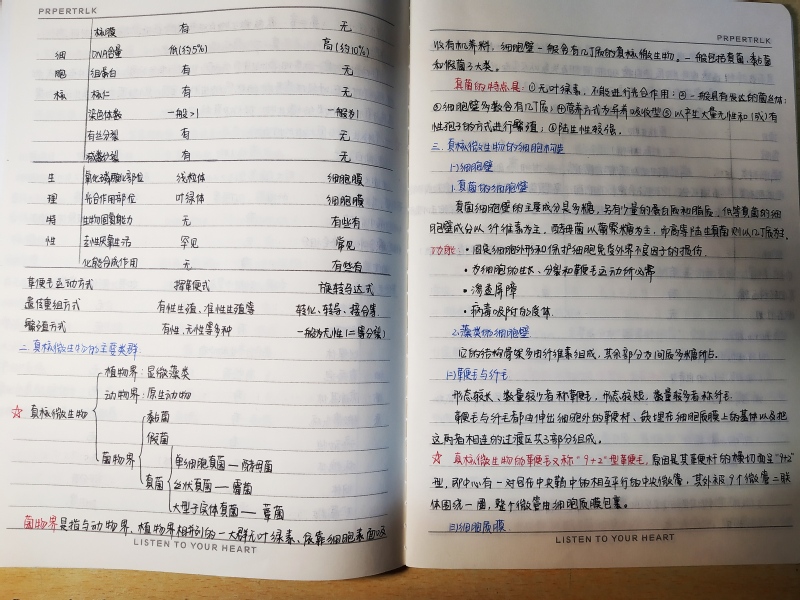 PRPERTRLK
核膜 有 无
细 DNA含量 低(约5%) 高(约10%)
胞 组蛋白 有 无
核 核仁 有 无
染色体数 一般>1 一般为1
有丝分裂 有 无
减数分裂 有 无
生 氧化磷酸化部位 线粒体 细胞膜
理 光合作用部位 叶绿体 细胞膜
特 生物固氮能力 无 有些有
性 专性厌氧生活 罕见 常见
化能合成作用 无 有些有
鞭毛运动方式 挥鞭式 旋转马达式
遗传重组方式 有性生殖、准性生殖等 转化、转导、接合等
繁殖方式 有性、无性等多种 一般为无性(二等分裂)
二.真核微生物的主要类群
植物界:显微藻类
动物界:原生动物
☆ 真核微生物
黏菌
假菌
菌物界
单细胞真菌—酵母菌
真菌 丝状真菌—霉菌
大型子实体真菌—蕈菌
菌物界是指与动物界、植物界相并列的一大群无叶绿素、依靠细胞表面吸
LISTEN TO YOUR HEART
PRPERTRLK
收有机养料,细胞壁一般含有几丁质的真核微生物。一般包括真菌、黏菌
和假菌3大类。
真菌的特点是:①无叶绿素,不能进行光合作用;②一般具有发达的菌丝体;
③细胞壁多数含有几丁质;④营养方式为异养吸收型⑤以产生大量无性和(或)有
性孢子的方式进行繁殖;⑥陆生性较强。
三.真核微生物的细胞构造
(一)细胞壁
1.真菌的细胞壁
真菌细胞壁的主要成分是多糖,另有少量的蛋白质和脂质,低等真菌的细
胞壁成分以纤维素为主,酵母菌以葡聚糖为主,而高等陆生真菌则以几丁质为主。
功能 •固定细胞外形和保护细胞免受外界不良因子的损伤.
•为细胞的生长、分裂和鞭毛运动所必需
•渗透屏障
•病毒吸附的受体.
2.藻类的细胞壁
它的结构骨架多由纤维素组成,其余部分为间质多糖所占.
(二)鞭毛与纤毛
形态较长、数量较少者称鞭毛,形态较短,数量较多者称纤毛.
鞭毛与纤毛都由伸出细胞外的鞭杆、嵌埋在细胞质膜上的基体以及把
这两者相连的过渡区共3部分组成。
☆ 真核微生物的鞭毛又称“9+2”型鞭毛,原因是其鞭杆的横切面呈“9+2”
型,即中心有一对包在中央鞘中的相互平行的中央微管,其外被9个微管二联
体围绕一圈,整个微管由细胞质膜包裹。
(三)细胞质膜
LISTEN TO YOUR HEART